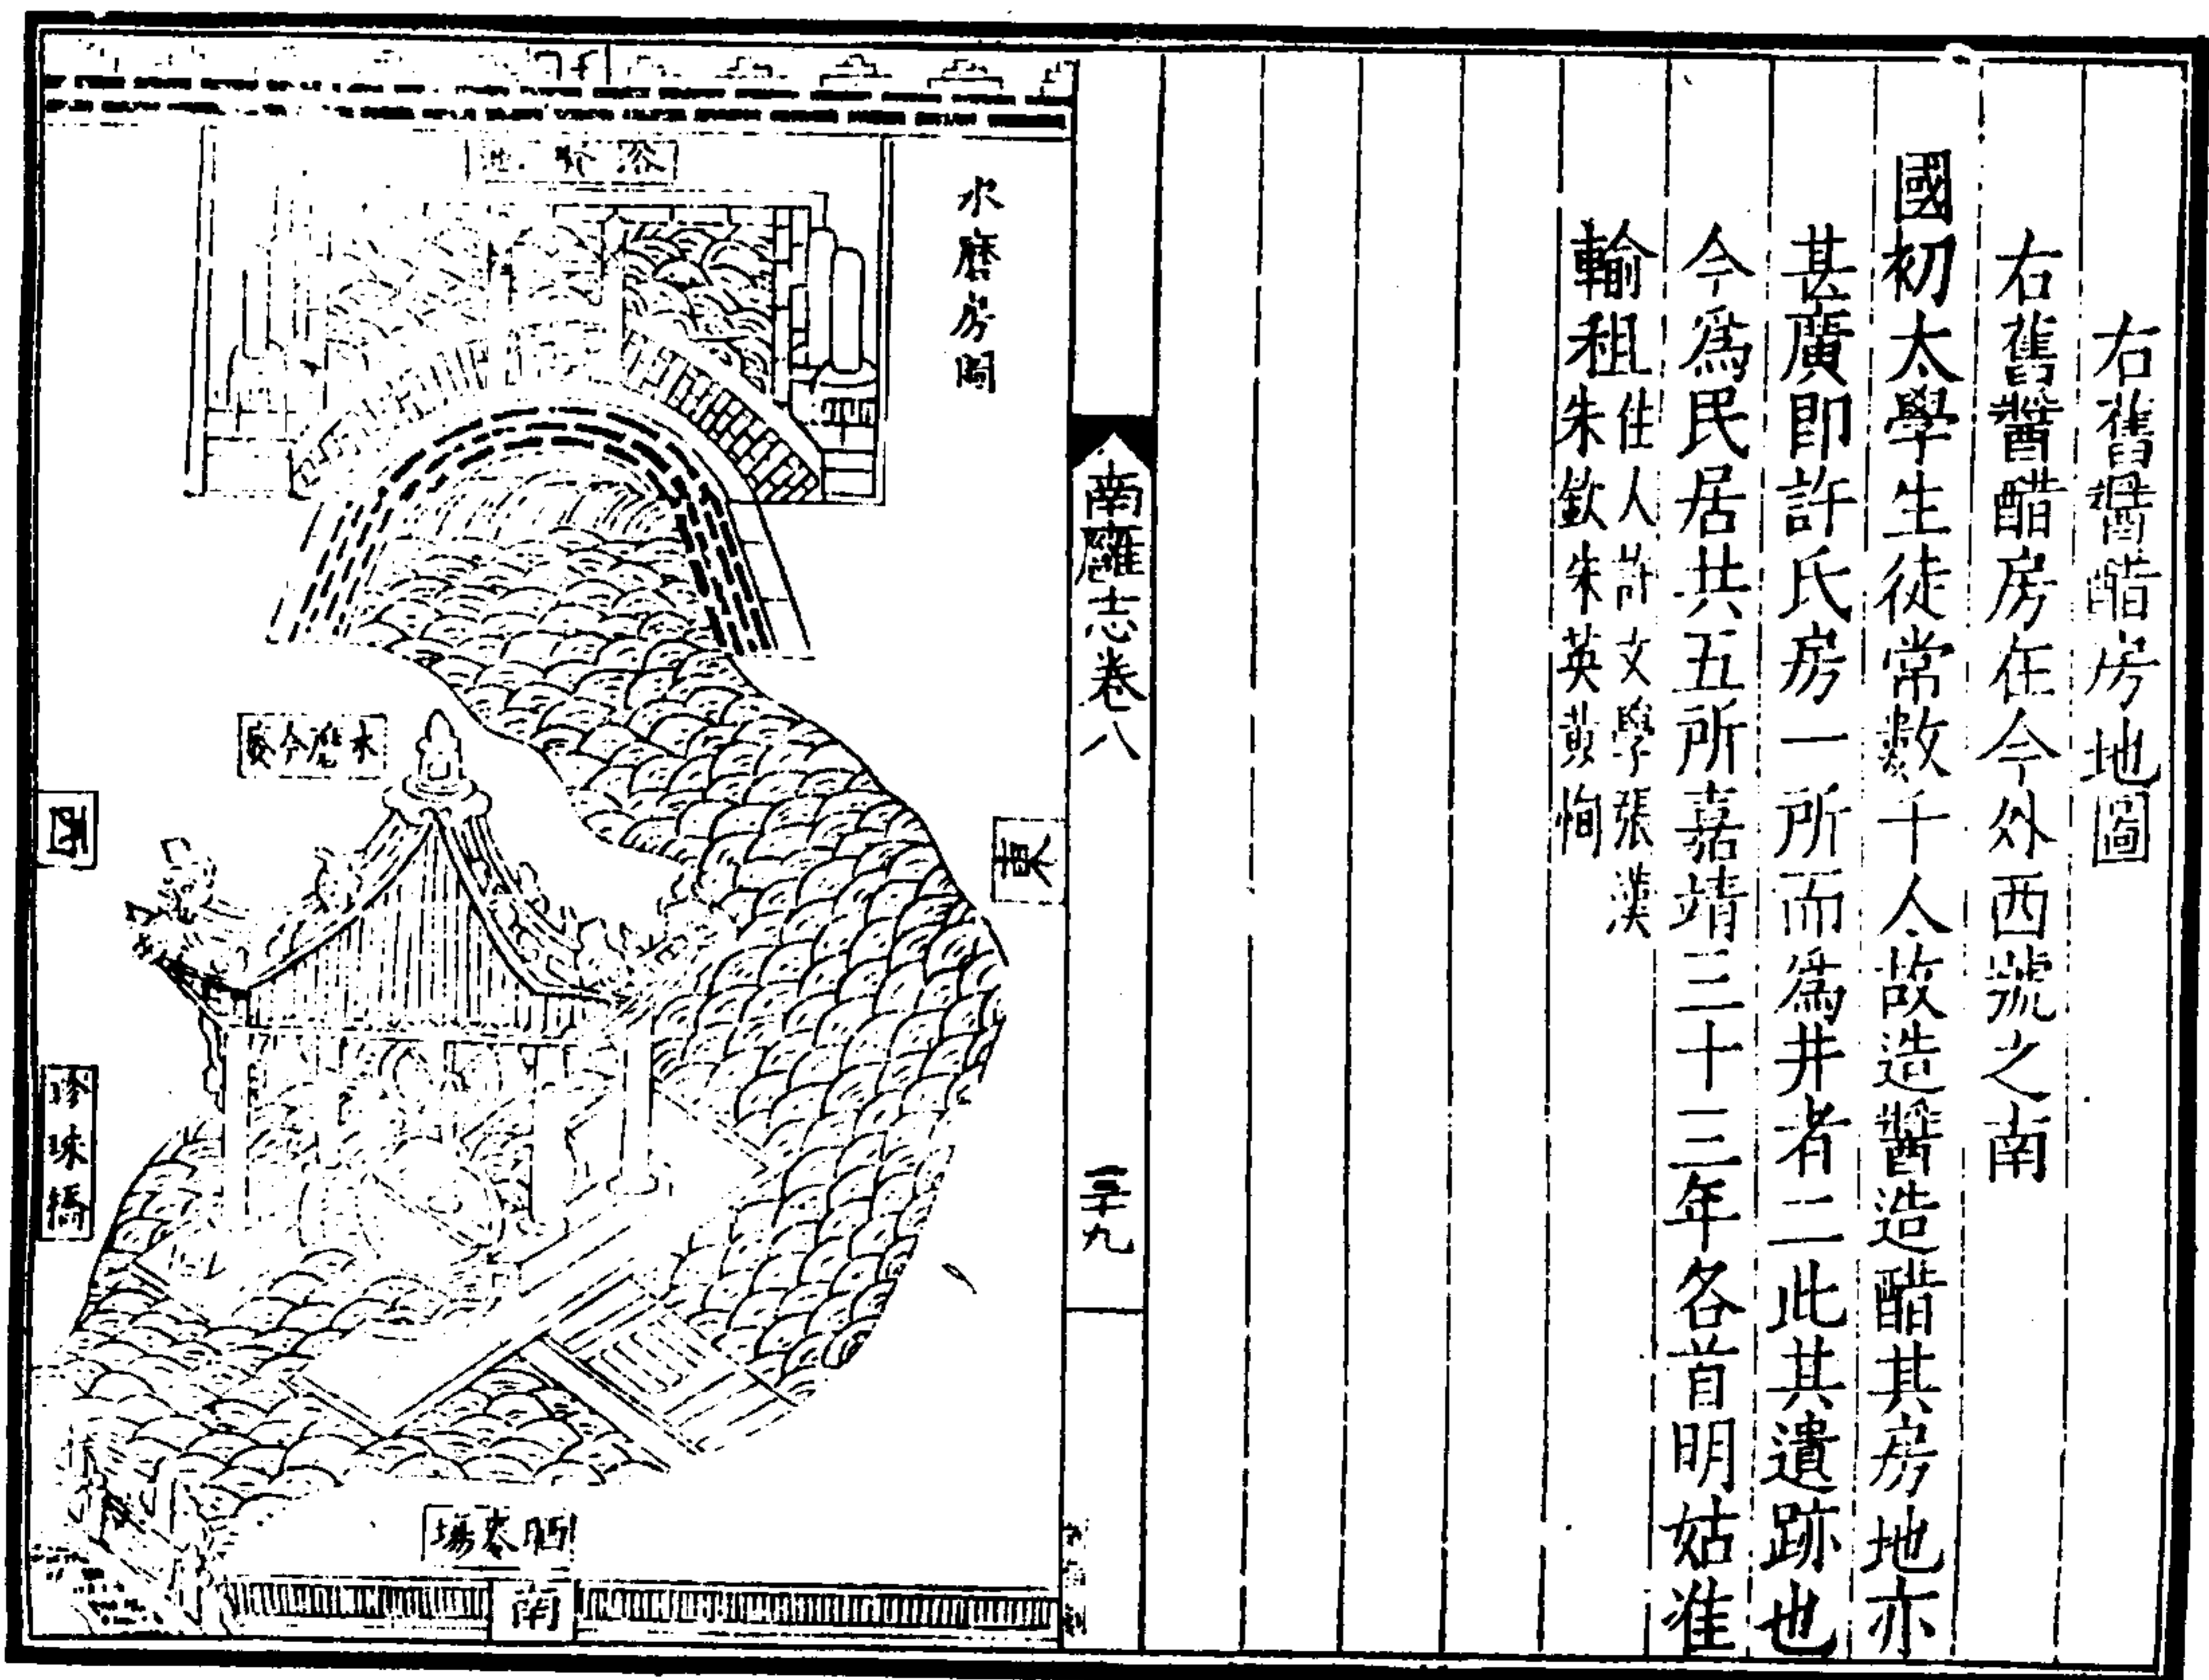 右舊醬醋房地圖
右舊醬醋房在今外西號之南
國初太學生徒常數千人故造醬造醋其房地亦
甚廣即許氏房一所而爲井者二此其遺跡也
今爲民居共五所嘉靖三十三年各首明姑准
輸租
住人許文學張漢
朱欽朱英黄恂
南廱志卷八
三十九
水磨房圖
水磨今廢
東
西
珍珠橋
晒麥場
南